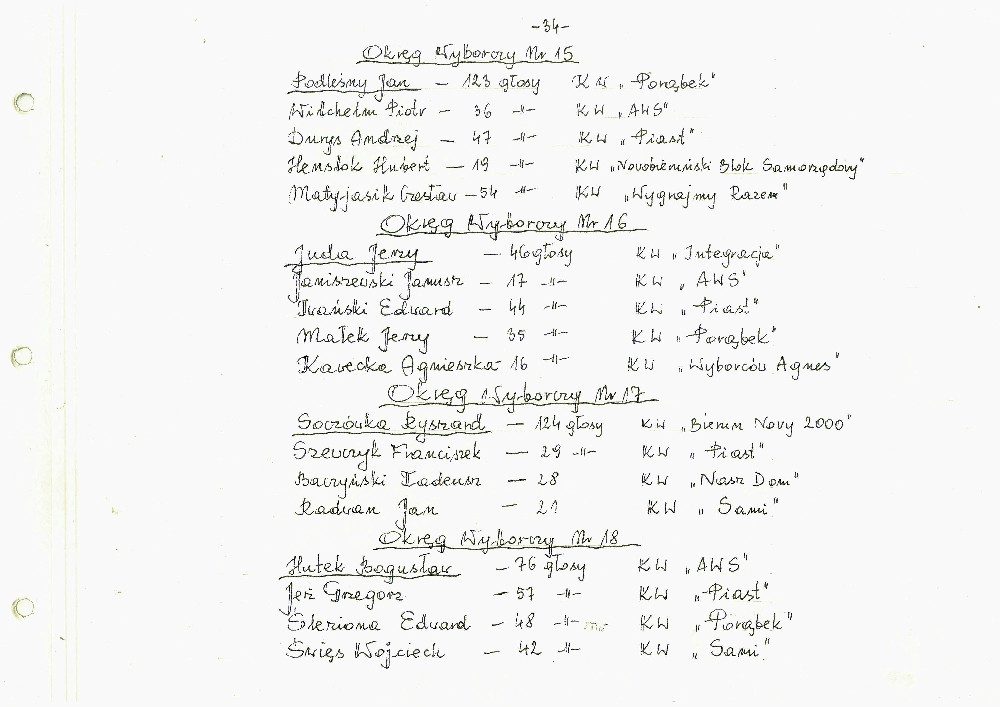 -34-
Okręg Wyborczy Nr 15
Podleśny Jan - 123 głosy KW „Porąbek"
Wilchelm Piotr - 36 -"- KW „AWS"
Durys Andrzej - 47 -"- KW „Piast"
Henslok Hubert - 19 -"- KW „Nowobieruński Blok Samorządowy"
Matyjasik Czesław - 54 -"- KW „Wygrajmy Razem"
Okręg Wyborczy Nr 16
Juda Jerzy - 46 głosy KW „Integracja"
Janiszewski Janusz - 17 -"- KW „AWS"
Iwański Edward - 44 -"- KW „Piast"
Małek Jerzy - 35 -"- KW „Porąbek"
Kawecka Agnieszka - 16 -"- KW „Wyborców Agnes"
Okręg Wyborczy Nr 17
Soczówka Ryszard - 124 głosy KW „Bieruń Nowy 2000"
Szewczyk Franciszek - 29 -"- KW „Piast"
Baczyński Tadeusz - 28 KW „Nasz Dom"
Radwan Jan - 21 KW „Sami"
Okręg Wyborczy Nr 18
Hutek Bogusław - 76 głosy KW „AWS"
Jeż Grzegorz - 57 -"- KW „Piast"
Edward - 48 -"- KW „Porąbek"
Święs Wojciech - 42 -"- KW „Sami"